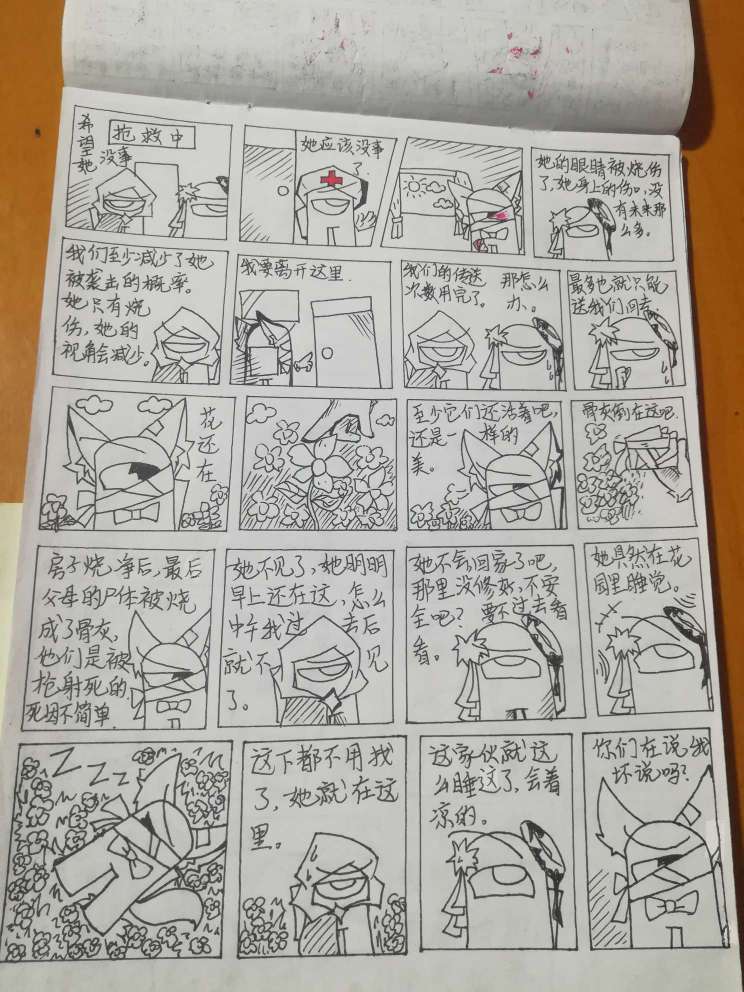 希望她没事
抢救中
她应该没事
了.
她的眼睛被烧伤
了,她身上的伤口,没
有未来那
么多。
我们至少减少了她
被袭击的概率。
她只有烧
伤,她的
视角会减少。
我要离开这里.
我们的传送
次数用完了。
那怎么
办、。
最多也就只能
送我们回去.
花
还
在
至少它们还活着吧,
还是一样的
美。
骨灰倒在这吧.
房子烧净后,最后
父母的尸体被烧
成了骨灰,
他们是被
枪射死的
死因不简单.
她不见了,她明明
早上还在这,怎么
中午我过去后
就不见
了。
她不会回家了吧,
那里没修好,不安
全吧?要不过去看
看。
她居然在花
园里睡觉。
ZZZZ
这下都不用找
了,她就在这
里。
这家伙就这
么睡这了,会着
凉的。
你们在说我
坏说吗?